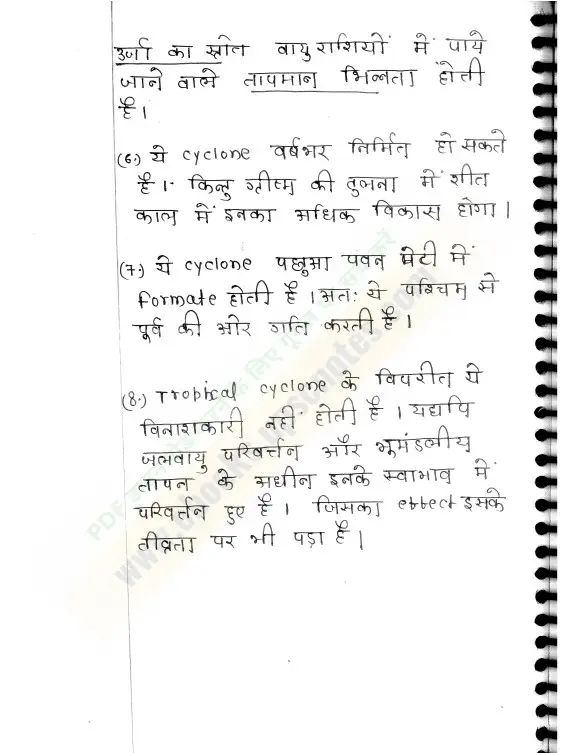 उर्जा का स्रोत वायुराशियों में पाये
जाने वाले तापमान भिन्नता होती
है।
(6.) ये cyclone वर्षभर निर्मित हो सकते
है। किन्तु ग्रीष्म की तुलना में शीत
काल में इनका अधिक विकास होगा।
(7.) ये cyclone पछुआ पवन पेटी में
formate होती है। अतः ये पश्चिम से
पूर्व की ओर गति करती है।
(8.) Tropical cyclone के विपरीत ये
विनाशकारी नहीं होती है। यद्यपि
जलवायु परिवर्त्तन और भूमंडलीय
तापन के अधीन इनके स्वाभाव में
परिवर्त्तन हुए है। जिसका effect इसके
तीव्रता पर भी पड़ा है।